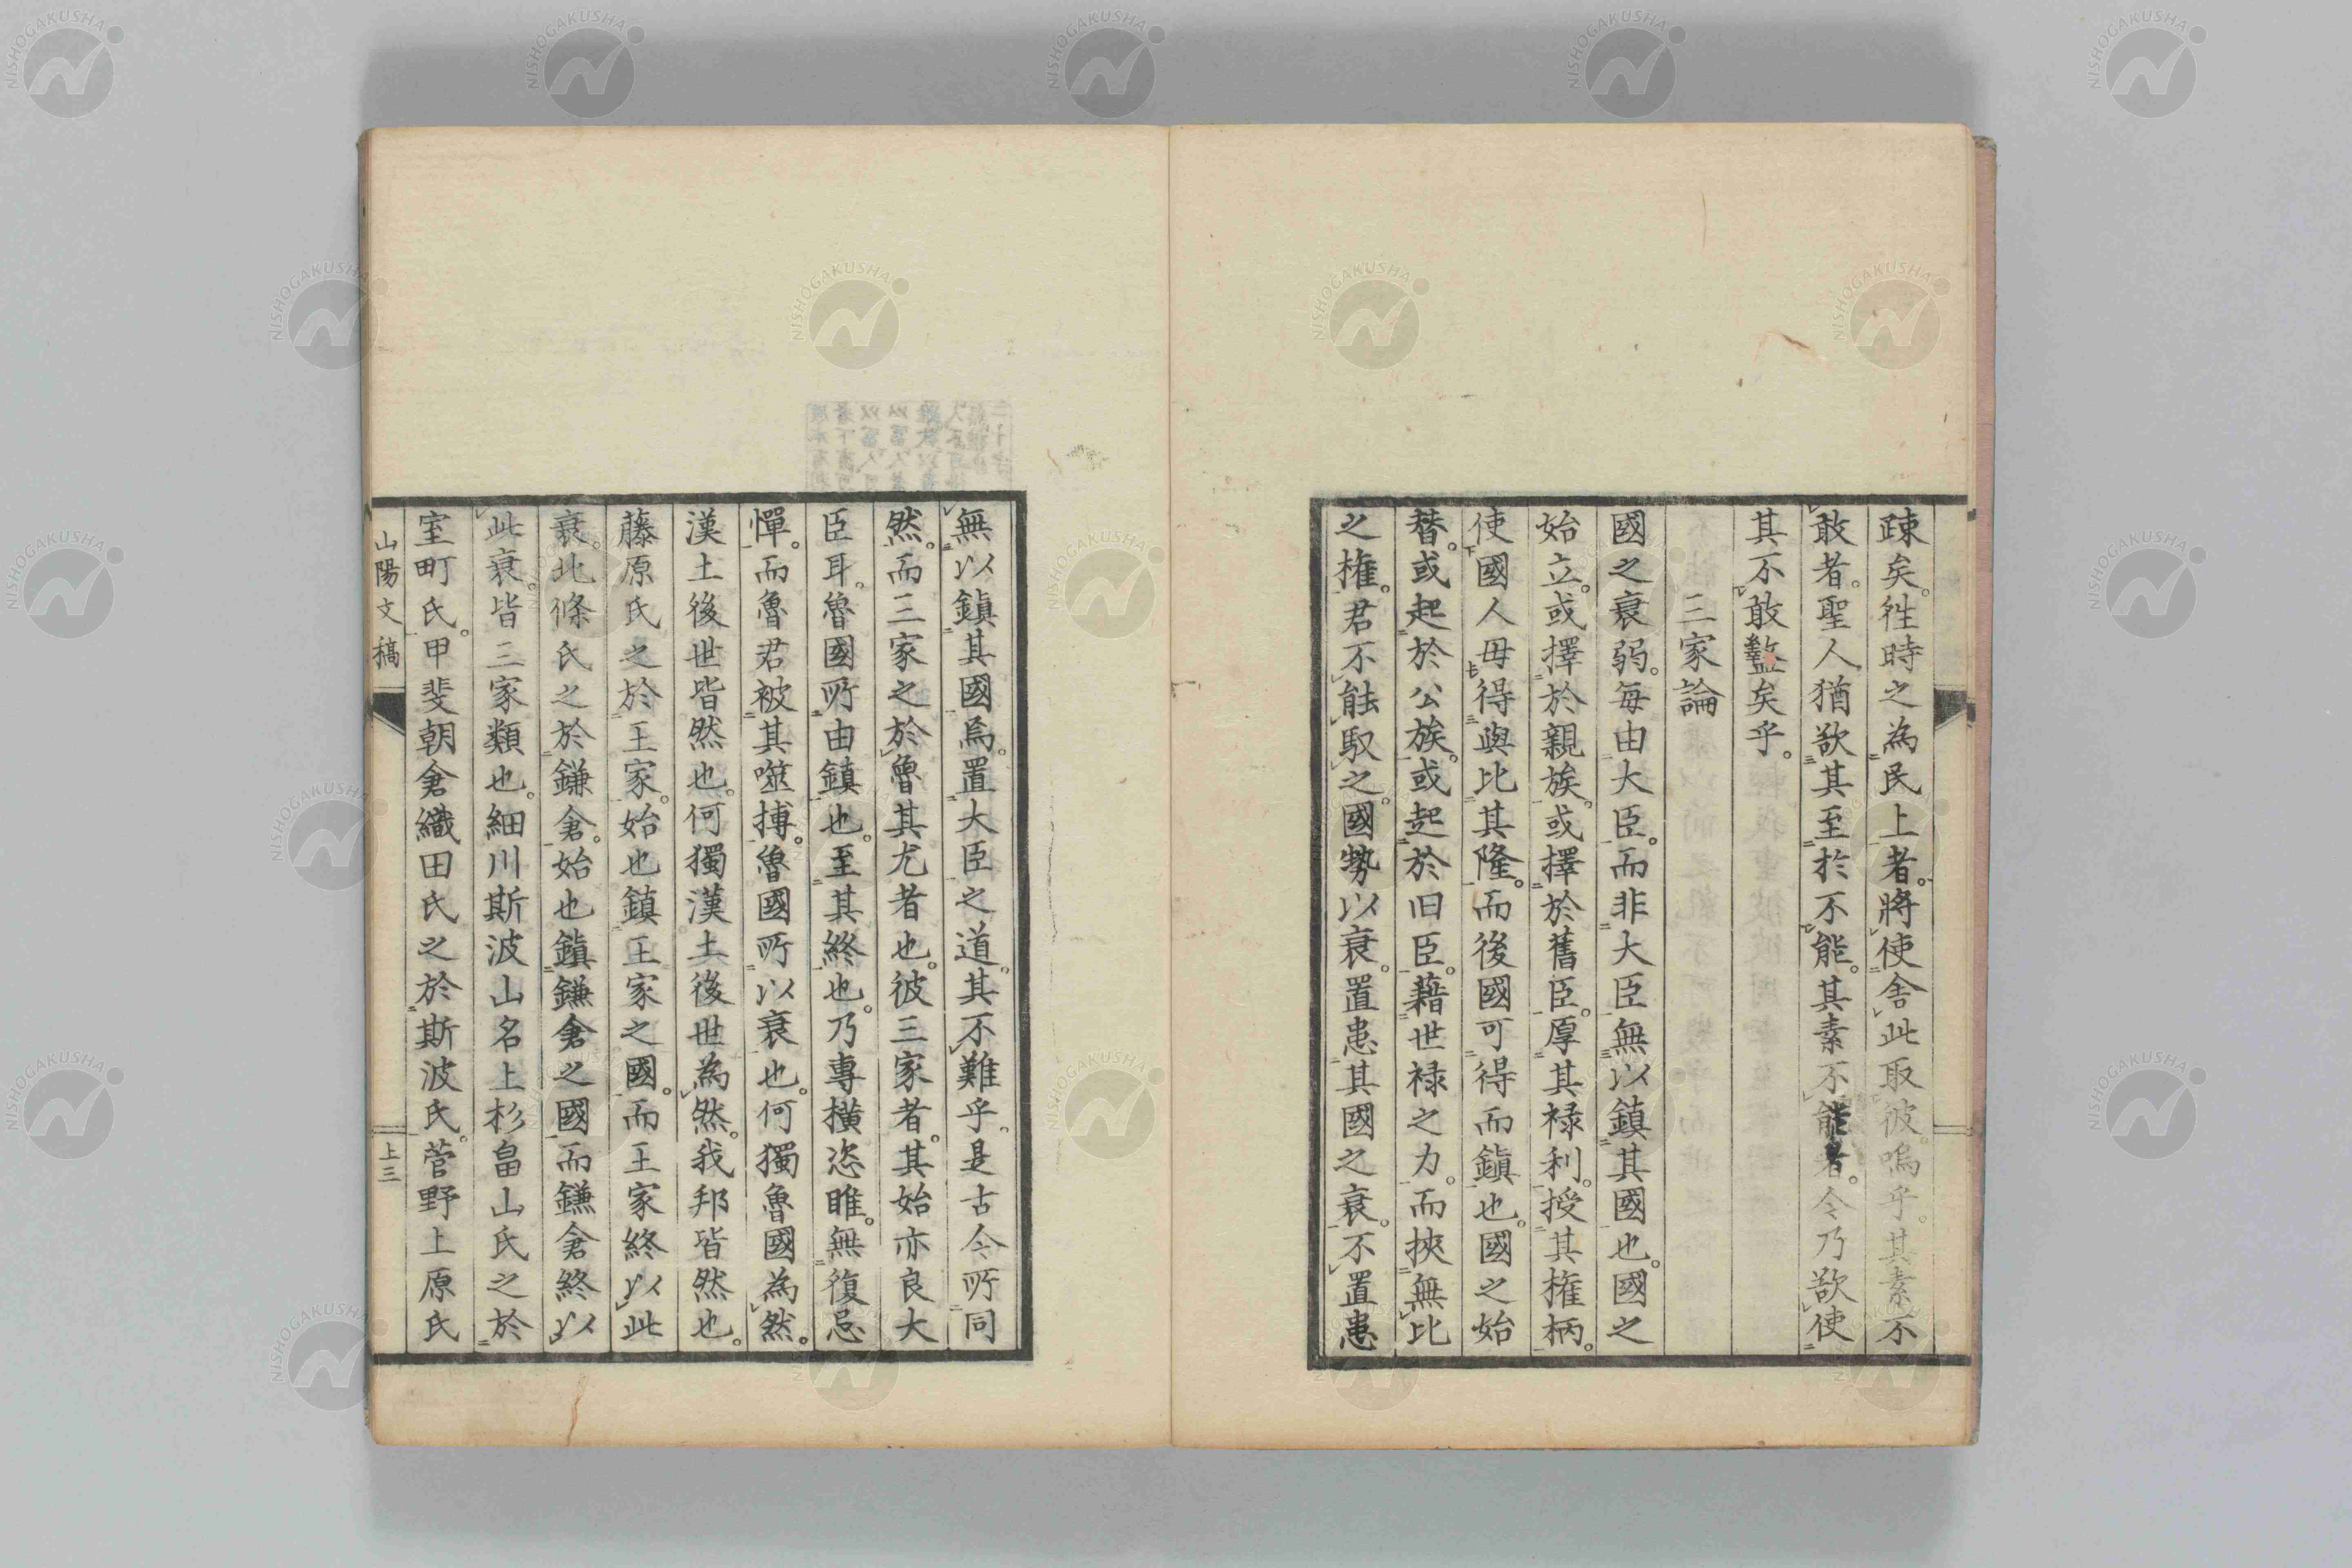 疎矣。徃時之為民上者。將使舎此取彼。嗚乎。其素不
敢者。聖人。猶欲其至於不能。其素不能者。今乃欲使
其不敢盭矣乎。
三家論
國之衰弱。毎由大臣。而非大臣無以鎮其國也。國之
始立。或擇於親族。或擇於舊臣。厚其禄利。授其権柄。
使國人毋得與比其隆。而後國可得而鎮也。國之始
替。或起於公族。或起於旧臣。藉世禄之力。而挾無比
之権。君不能馭之。國勢以衰。置患其國之衰。不置患
無以鎮其國焉。置大臣之道。其不難乎。是古今所同
然。而三家之於魯其尤者也。彼三家者。其始亦良大
臣耳。魯國所由鎮也。至其終也。乃專横恣睢。無復忌
憚。而魯君被其噬搏。魯國所以衰也。何獨魯國為然。
漢土後世皆然也。何獨漢土後世為然。我邦皆然也。
藤原氏之於王家。始也鎮王家之國。而王家終以此
衰。北條氏之於鎌倉。始也鎮鎌倉之國而鎌倉終以
此衰。皆三家類也。細川斯波山名上杉畠山氏之於
室町氏。甲斐朝倉織田氏之於斯波氏。菅野上原氏
山陽文稿
上三
NISHOGAKUSHA